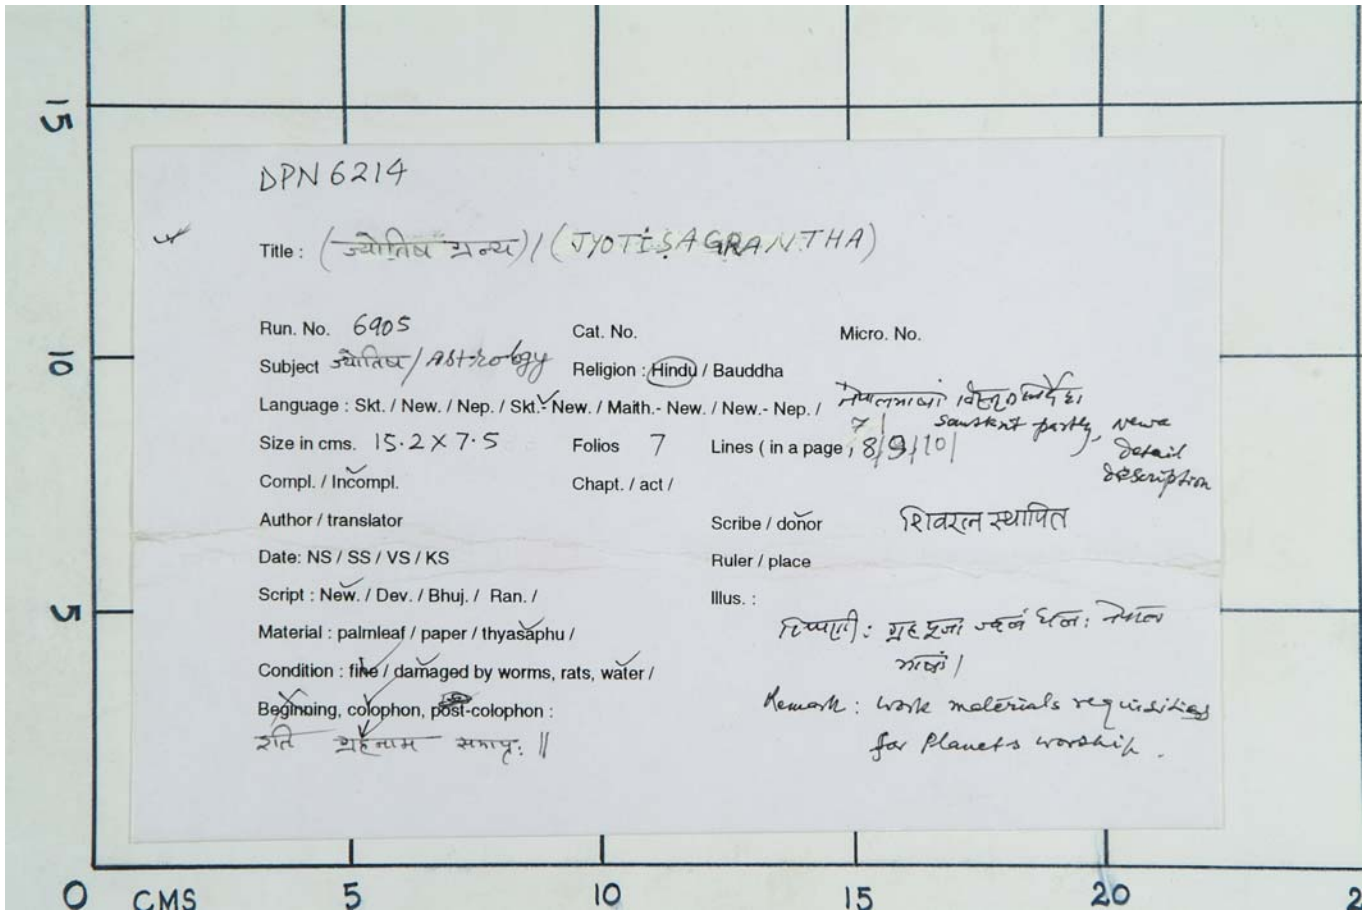 15
DPN 6214
Title : (ज्योतिष ग्रन्थ) / (JYOTIṢAGRANTHA)
Run. No. 6905 Cat. No. Micro. No.
10
Subject ज्योतिष / Astrology Religion : Hindu / Bauddha
Language : Skt. / New. / Nep. / Skt.- New. / Maith.- New. / New.- Nep. / नेपालभाषां
Sanskrit partly, newa
detail
description
Size in cms. 15.2 X 7.5 Folios 7 Lines ( in a page ) 7/ 8/9/10/
Compl. / Incompl. Chapt. / act /
Author / translator Scribe / donor शिवरत्न स्थापित
Date: NS / SS / VS / KS Ruler / place
Script : New. / Dev. / Bhuj. / Ran. / Illus. :
5
Material : palmleaf / paper / thyasaphu / टिप्पणी : ग्रह पूजा ज्वलं धलः नेपाल
भाषां /
Condition : fine / damaged by worms, rats, water /
Beginning, colophon, post-colophon : Remark : work materials requisities
इति ग्रहनाम समाप्तः ॥ for Planets worship .
0 CMS 5 10 15 20 2